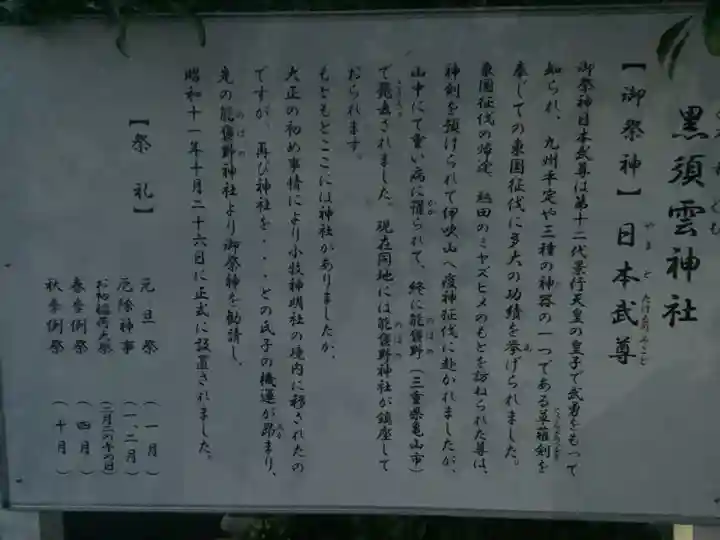 黒須雲神社
【御祭神】日本武尊
やまとたけるのみこと
御祭神日本武尊は第十二代景行天皇の皇子で武勇をもって
知られ、九州平定や三種の神器の一つである草薙剣を
奉じての東国征伐に多大の功績を挙げられました。
東国征伐の帰途、熱田のミヤズヒメのもとを訪ねられた尊は、
神剣を預けられて伊吹山へ疫神征伐に赴かれましたが、
山中にて重い病に罹られて、終に能褒野(三重県亀山市)
で薨去されました。現在同地には能褒野神社が鎮座して
おられます。
もともとここには神社がありましたが、
大正の初め事情により小牧神明社の境内に移されたの
ですが、再び神社を・・・との氏子の機運が昂まり、
先の能褒野神社より御祭神を勧請し、
昭和十一年十月二十六日に正式に設置されました。
【祭礼】
元旦祭 (一月)
厄除神事 (一、二月)
お初稲荷大祭 (二月二の午の日)
春季例祭 (四月)
秋季例祭 (十月)